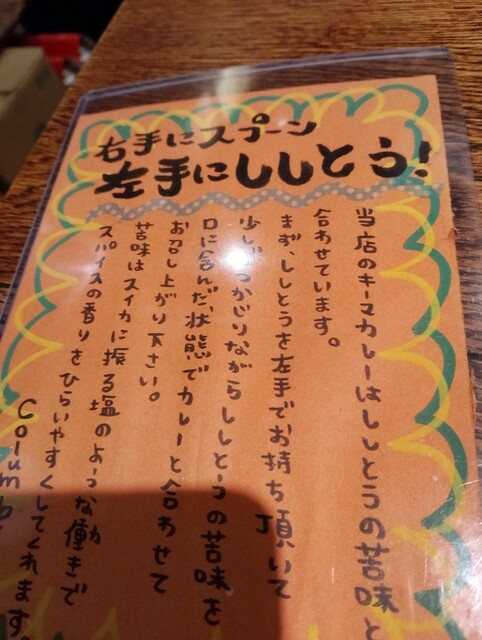 右手にスプーン
左手にししとう!
当店のキーマカレーはししとうの苦味と
合わせています。
まず、ししとうを左手でお持ち頂いて
少しずつかじりながらししとうの苦味を
口に含んだ状態でカレーと合わせて
お召し上がり下さい。
苦味はスイカに振る塩のような働きで
スパイスの香りをひらいやすくしてくれます。
Columb